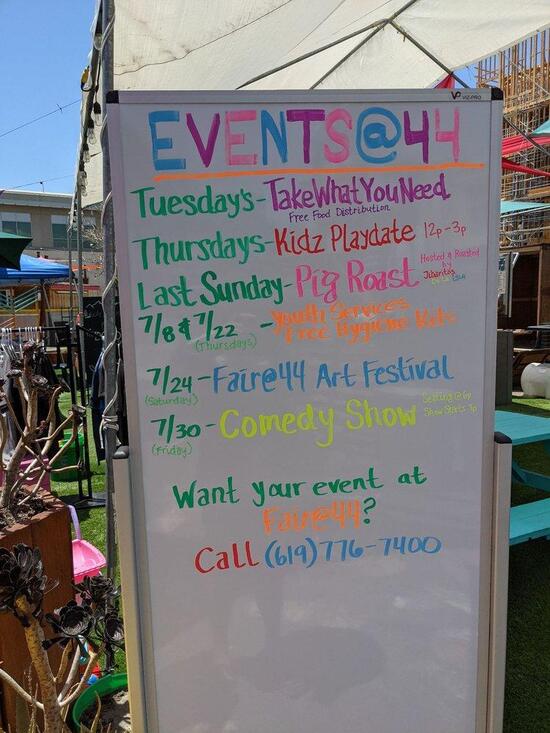 VIZ-PRO
EVENTS@44
Tuesday's-TakeWhatYouNeed
Free Food Distribution
Thursdays-Kidz Playdate 12p-3p
Last Sunday-Pig Roast Hosted & Roasted
by
7/8 & 7/22 - Youth Services
(Thursdays) Free Hygiene Kits
7/24-Fair@44 Art Festival
(Saturday)
7/30-Comedy Show Seating @6p
(Friday) Show Starts 7p
Want your event at
Fair@44?
Call (619)776-7400